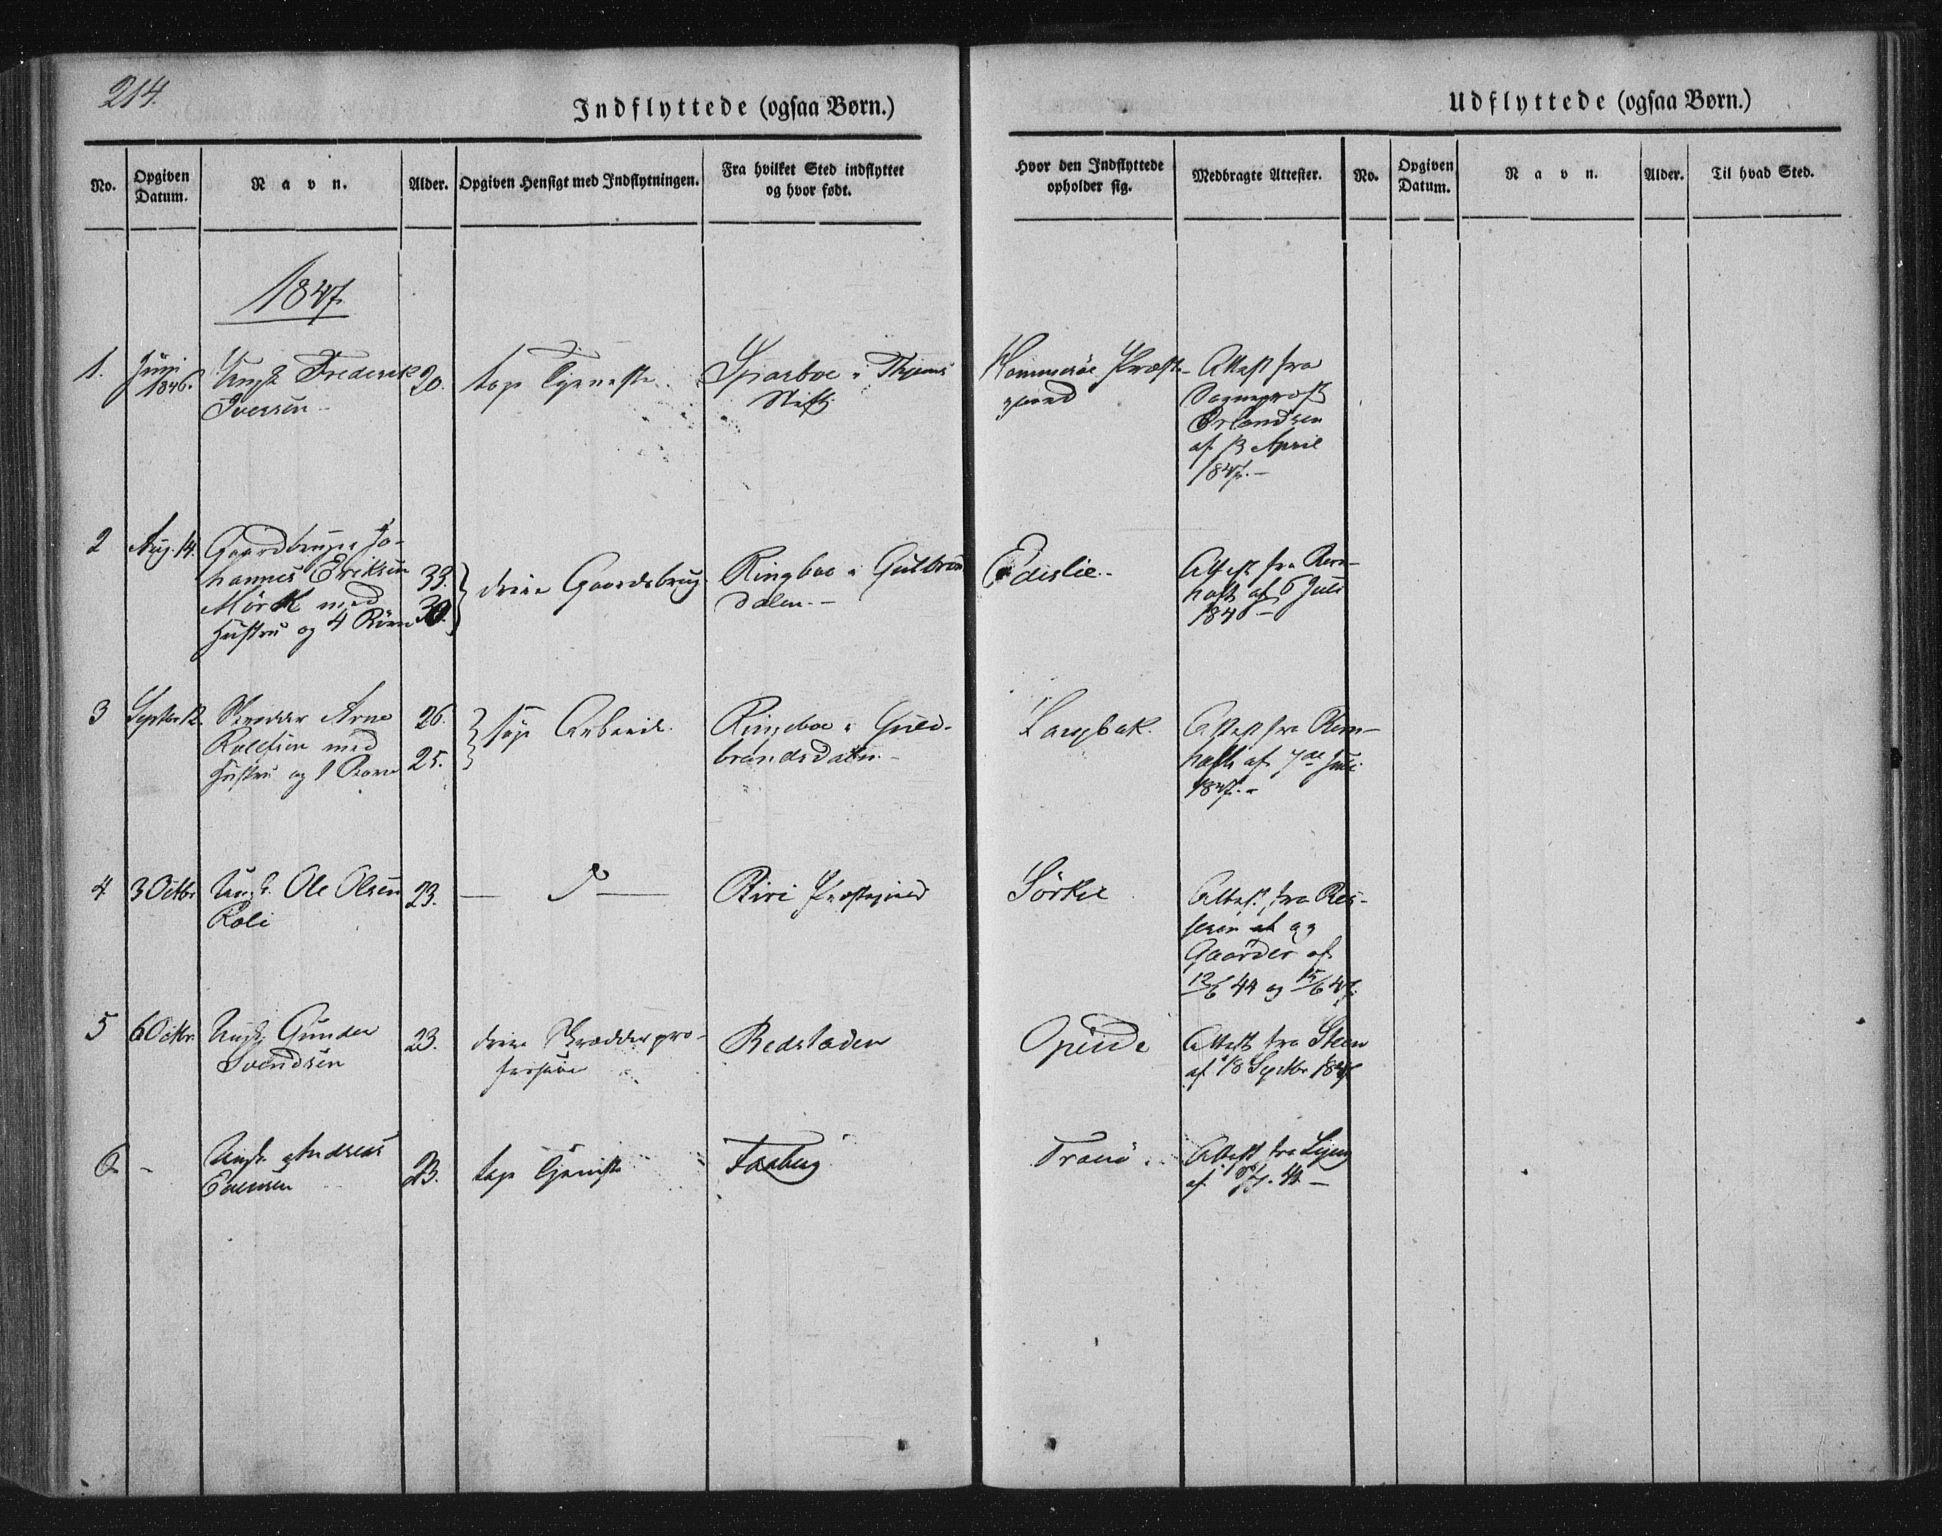 214.
Indflyttede (ogsaa Børn.)
No.
Opgiven Datum.
Navn.
Alder.
Opgiven Hensigt med Indflytningen.
Fra hvilket Sted indflyttet og hvor født.
Hvor den Indflyttede opholder sig.
Medbragte Attester.
Udflyttede (ogsaa Børn.)
No.
Opgiven Datum.
Navn.
Alder.
Til hvad Sted.
1847.
1.
Juni
1846.
Ungk. Frederik
Iversen
20.
tage Tjeneste
Sparboe i Thjems
Stift
Hammerøe Præste-
gaard
Attest fra
Sogneprest
Erlandsen
af 13 April
1847.
2
Aug. 14.
Gaardbruger Jo-
hannes Eriksen
Mörk med
Hustru og 4 Børn
33.
30.
drive Gaardsbrug
Ringboe i Gulbrands
dalen.
Edislie.
Attest fra
af 6 Juli
184
3
Septbr 12.
Skrædder Arne
med
Hustru og 1 Barn
26.
25.
søge Arbeide
Ringeboe i Guld-
brandsdalen
Langbak.
Attest fra
af 7de Juli
1847.
4
3 Octbr
Ungk. Ole Olsen
Roli
23.
Biri Præstegjeld
Sörkil
Attest fra
og
Gaarder af
12/6 44 og 15/6 47.
5
6 Octbr.
Ungk. Gunder
Svendsen
23.
drive Skrædderpro-
fession
Redstaden
Opeide
Attest fra Steen
af 18 Septbr 1847
6
-
Ungk. Andreas
Evensen
23.
tage Tjeneste
Faaberg
Tranö
Attest fra
af